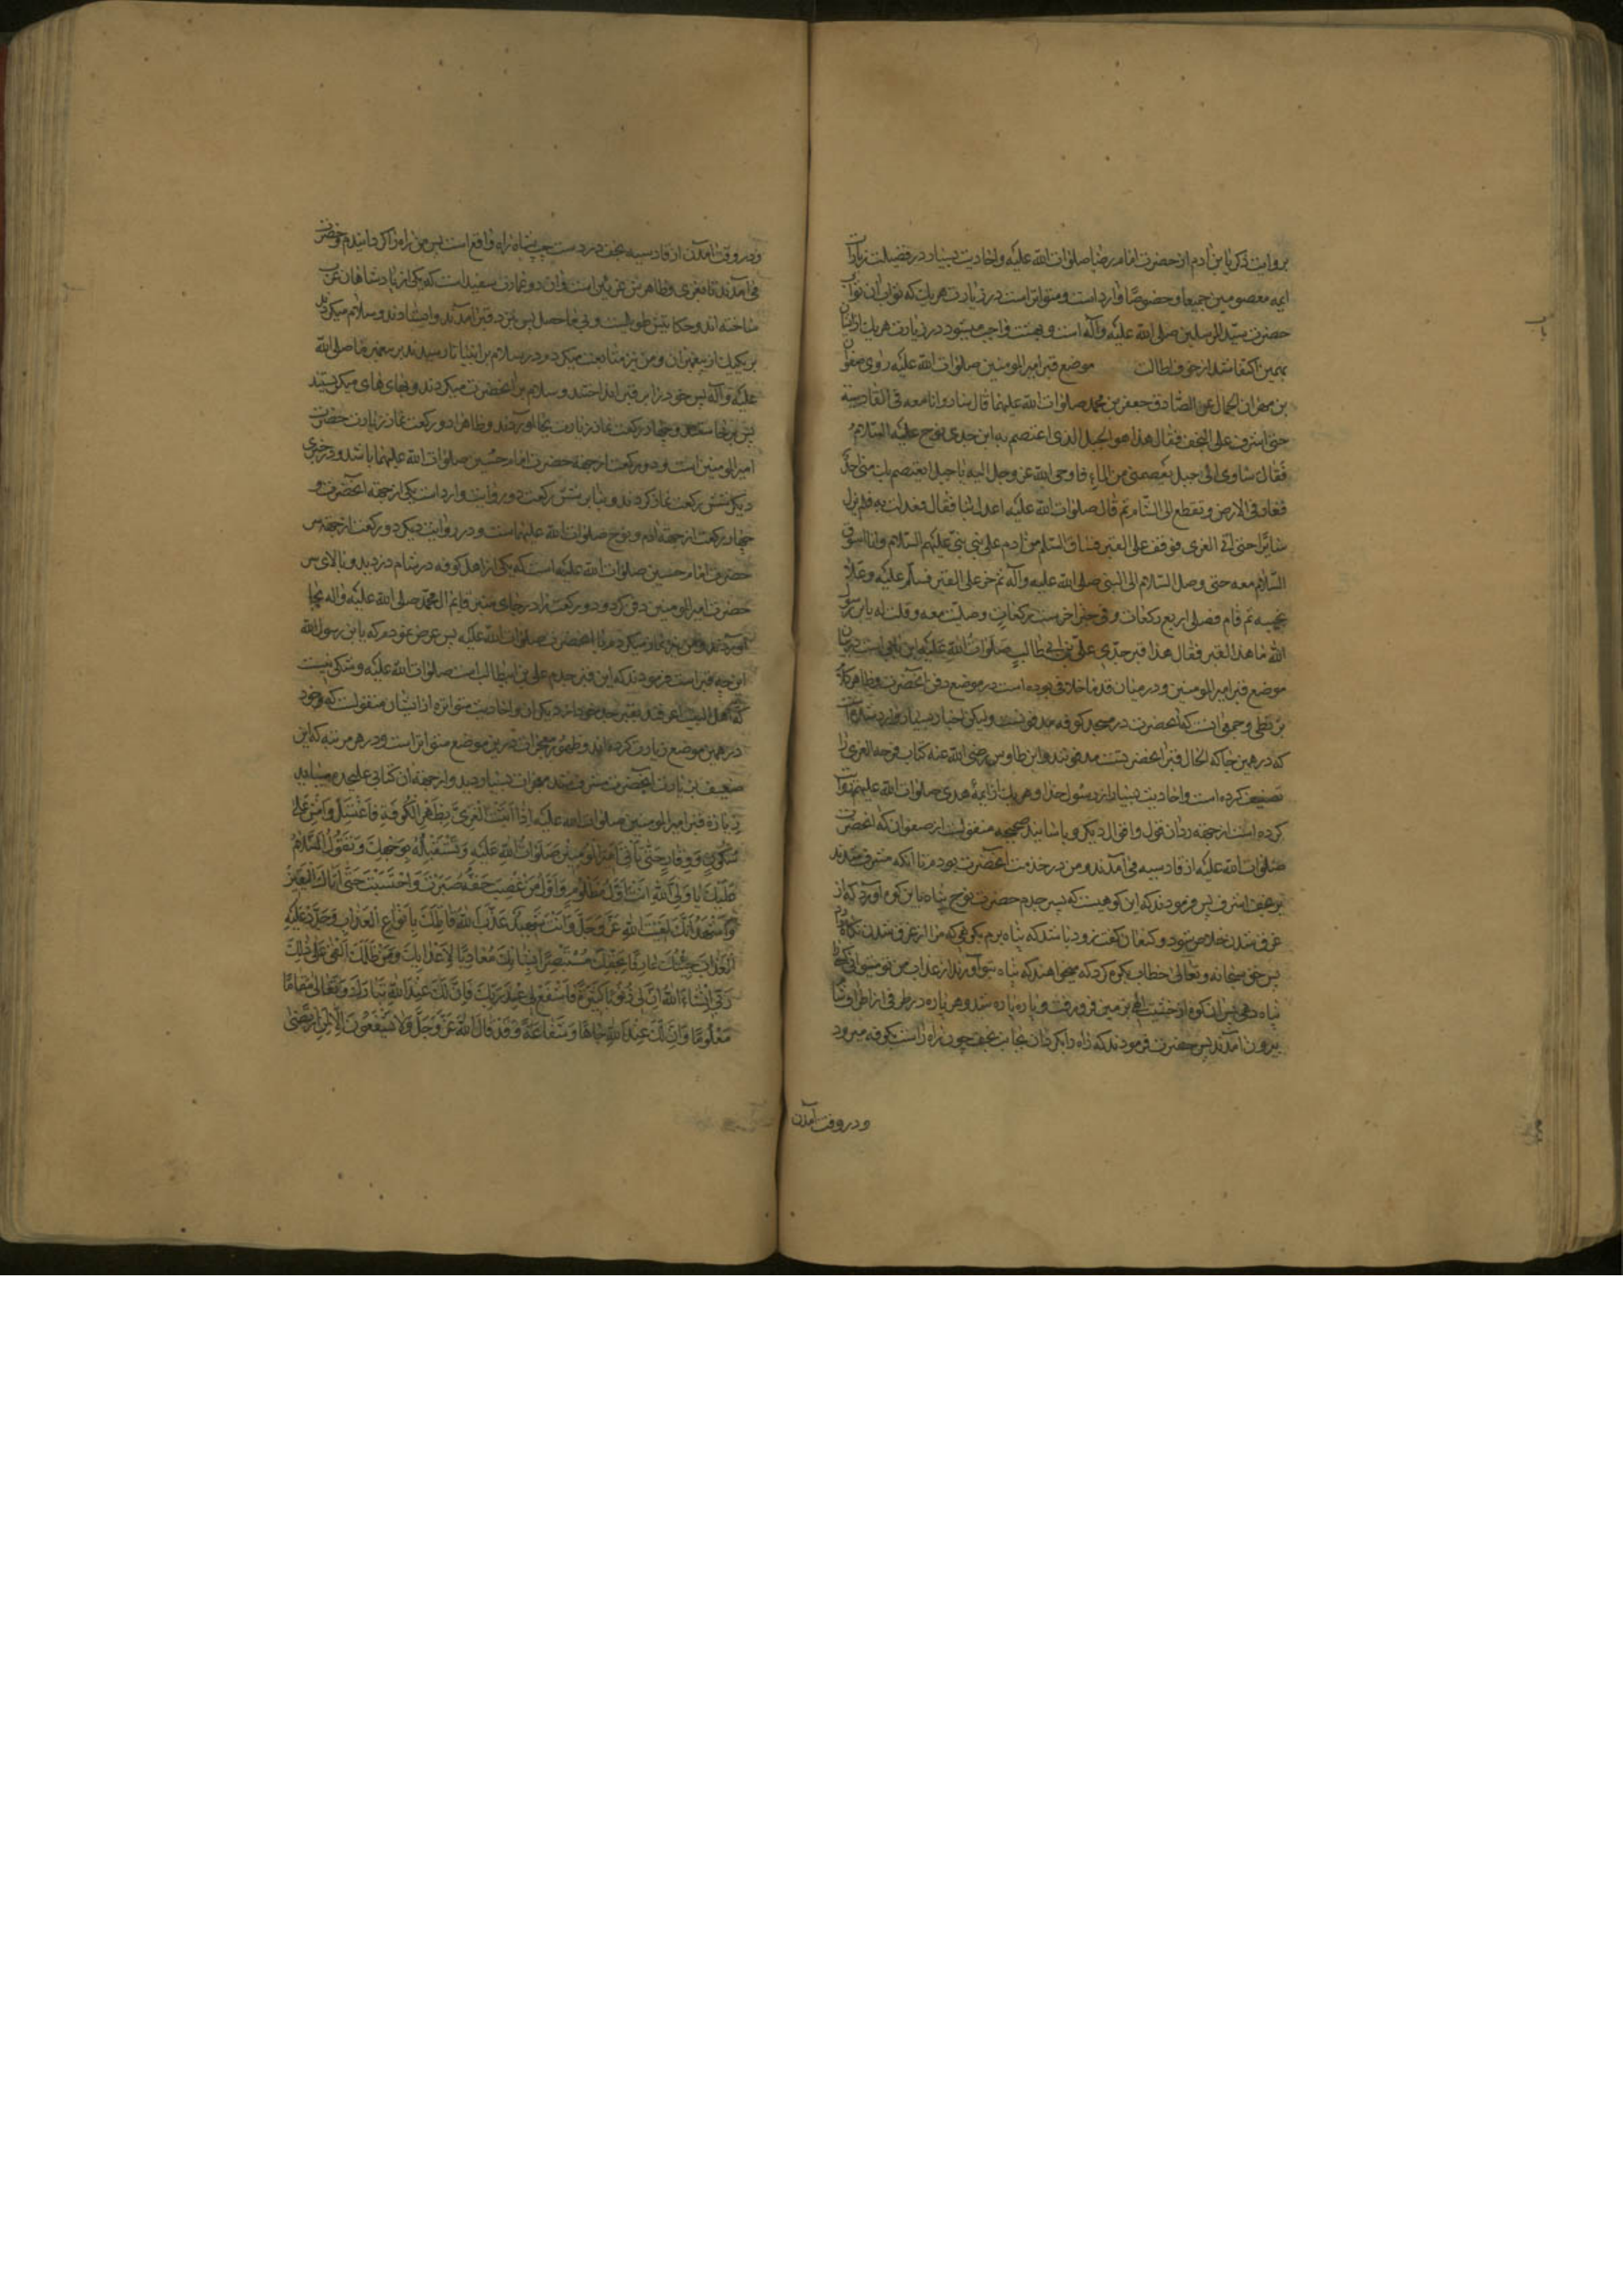 بروایت زکریا بن ادم از حضرت امام رضا صلوات الله علیه و احادیث بسیار در فضیلت زیارات
ایمه معصومین جمیعا و خصوصًا وارد است و متواتر است در زیارت هر یک که ثواب ان ثواب
حضرت سید المرسلین صلی الله علیه وآله است و بهشت واجب میشود در زیارت هر یک از ایشان
بهمین اکتفا شد از خوف اطالت موضع قبر امیر المومنین صلوات الله علیه روی صفوان
بن مهران الجمال عن الصّادق جعفر بن محمد صلوات الله علیهما قال سار وانا معه فی القادسیة
حتی اشرف علی النجف فقال هذا هو الجبل الذی اعتصم به ابن جدی نوح علیه السّلام
فقال ساوی الی جبل یعصمنی من الماء فاوحی الله عز وجل الیه یا جبل ایعتصم بک منی احد
فغار فی الارض و تقطع الی الشّام ثم قال صلوات الله علیه اعدل بنا فقال فعدلت به فلم یزل
سایرًا حتی اتی الغری فوقف علی القبر فساق السّلام من ادم علی نبی نبی علیهم السّلام وانا اسوق
السّلام معه حتی وصل السّلام الی النبی صلی الله علیه وآله ثم خر علی القبر فسلّم علیه وعلا
نحیبه ثم قام فصلی اربع رکعات و فی خبر اخر ست رکعات وصلیت معه وقلت له یا بن رسول
الله ما هذا القبر فقال هذا قبر جدّی علی بن ابی طالب صَلَواتُ الله عَلَیه این بابی است در بیان
موضع قبر امیر المومنین و در میان قدما خلافی بوده است در موضع دفن آنحضرت و ظاهر کلام
بزنطی و جمعی انست که آنحضرت در مسجد کوفه مدفونست ولیکن اخبار بسیار وارد شده است
که در همین جا که الحال قبر آنحضرتست مدفونند و ابن طاوس رضی الله عنه کتاب فرحه الغری را
تصنیف کرده است و احادیث بسیار از رسول خدا و هر یک از ایمهٔ هدی صلوات الله علیهم نقل
کرده است از جهة رد ان قول و اقوال دیگر و باسانید صحیحه منقولست از صفوان که آنحضرت
صلوات الله علیه از قادسیه می آمدند و من در خدمت آنحضرت بودم تا آنکه مشرف شدند
بر نجف اشرف پس فرمودند که این کوهیست که پسر جدم حضرت نوح پناه باین کوه آورد که از
غرق شدن خلاص شود و کنعان گفت زود باشد که پناه برم بکوهی که مرا از غرق شدن نگاه دارد
پس حق سبحانه و تعالی خطاب بکوه کرد که میخواهند که پناه بتو آورند از عذاب من تو میتوانی که
پناه دهی پس ان کوه از خشیت الهی بزمین فرو رفت و پاره پاره شد و هر پاره در طرفی از اطراف شام
بیرون آمدند پس حضرت فرمودند که راه را بگردان بجانب نجف چون راه راست بکوفه میرود
ودر وقت آمدن
ودر وقت آمدن از قادسیه نجف در دست چپ شاه راه واقع است پس من راه را گردانیدم و حضرت
می آمدند تا بغری و ظاهرش غریین است و ان دو عمارت سفید است که یکی از پادشاهان عرب
ساخته اند و حکایتش طویلست و بی ما حصل پس بنزد قبر آمدند و ایستادند و سلام میکردند
بر یکیک از پیغمبران و من نیز متابعت میکردم در سلام بر انبیا تا رسیدند بر پیغمبر ما صلی الله
علیه وآله پس خود را بر قبر انداختند و سلام بر آنحضرت میکردند و بهای های میگریستند
پس برخاستند و چهار رکعت نماز زیارت بجا آوردند و ظاهرا دو رکعت نماز زیارت حضرت
امیر المومنین است و دو رکعت از جهة حضرت امام حسین صلوات الله علیهما باشد و در خبری
دیگر شش رکعت نماز کردند و بنا بر شش رکعت دو روایت وارد است یکی از جهة آنحضرت و
چهار رکعت از جهة آدم و نوح صلوات الله علیهما است و در روایت دیگر دو رکعت از جهة سر
حضرت امام حسین صلوات الله علیه است که یکی از اهل کوفه در شام دزدید و بالای سر
حضرت امیر المومنین دفن کرد و دو رکعت نماز در جای منبر قائم ال محمد صلی الله علیه واله بجا
آوردند و من نیز نماز میکردم با آنحضرت صلوات الله علیه پس عرض نمودم که یا بن رسول الله
این چه قبر است فرمودند که این قبر جدم علی بن ابیطالب است صلوات الله علیه و شکی نیست
که اهل البیت اعرفند بقبر جد خود از دیگران و احادیث متواتره از ایشان منقولست که خود
در همین موضع زیارت کرده اند و ظهور معجزات در این موضع متواتر است و در هر مرتبه که این
ضعیف بزیارت آنحضرت مشرف شدم معجزات بسیار دیدم و از جهة ان کتابی علیحده میباید
زیارة قبر امیر المومنین صلوات الله علیه اِذا اَتَیْتَ الْغَرِیَّ بِظَهْرِ الْکُوفَةِ فَاغْتَسِلْ وَامْشِ عَلی
سُکُونٍ وَوِقارٍ حَتّی تَأتِیَ اَمیرَ المُؤمِنینَ صَلَواتُ اللهِ عَلَیْهِ وَتَسْتَقْبِلَهُ بِوَجْهِکَ وَتَقُولُ اَلسَّلامُ
عَلَیْکَ یا وَلِیَّ اللهِ اَنْتَ اَوَّلُ مَظْلُومٍ وَاَوَّلُ مَنْ غُصِبَ حَقُّهُ صَبَرْتَ وَاحْتَسَبْتَ حَتّی اَتاکَ الْیَقینُ
وَاَشْهَدُ اَنَّکَ لَقیتَ اللهَ عَزَّ وَجَلَّ وَاَنْتَ شَهیدٌ عَذَّبَ اللهُ قاتِلَکَ بِاَنْواعِ الْعَذابِ وَجَدَّدَ عَلَیْهِ
الْعَذابَ جِئْتُکَ عارِفًا بِحَقِّکَ مُسْتَبْصِرًا بِشَأنِکَ مُعادِیًا لِاَعْدائِکَ وَمَنْ ظَلَمَکَ اَلْقی عَلی ذلِکَ
رَبّی اِنْ شاءَ اللهُ اِنَّ لی ذُنُوبًا کَثیرَةً فَاشْفَعْ لی عِنْدَ رَبِّکَ فَاِنَّ لَکَ عِنْدَ اللهِ تَبارَکَ وَتَعالی مَقامًا
مَعْلُومًا وَاِنَّ لَکَ عِنْدَ اللهِ جاهًا وَشَفاعَةً وَقَدْ قالَ اللهُ عَزَّ وَجَلَّ وَلا یَشْفَعُونَ اِلّا لِمَنِ ارْتَضی